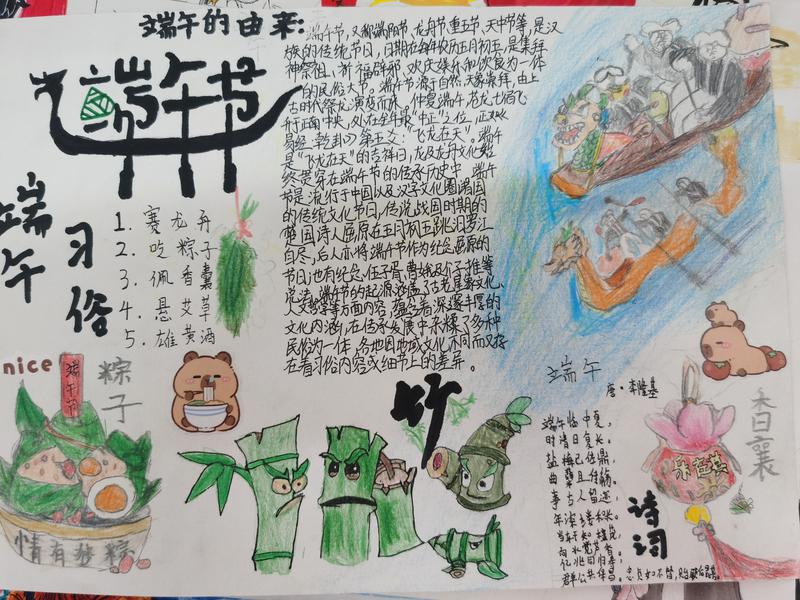 端午的由来:
端午节
端午节,又称端阳节、龙舟节、重五节、天中节等,是汉
族的传统节日,日期在每年农历五月初五,是集拜
神祭祖、祈福辟邪、欢庆娱乐和饮食为一体
的民俗大节。端午节源于自然天象崇拜,由上
古时代祭龙演变而来。仲夏端午,苍龙七宿飞
升于正南中央,处在全年最"中正"之位,正如《
易经·乾卦》第五爻:"飞龙在天"。端午
是"飞龙在天"的吉祥日,龙及龙舟文化始
终贯穿在端午节的传承历史中。端午
节是流行于中国以及汉字文化圈诸国
的传统文化节日,传说战国时期的
楚国诗人屈原在五月初五跳汨罗江
自尽,后人亦将端午节作为纪念屈原的
节日;也有纪念伍子胥、曹娥及介子推等
说法。端午节的起源涵盖了古老星象文化、
人文哲学等方面内容,蕴含着深邃丰厚的
文化内涵,在传承发展中杂糅了多种
民俗为一体,各地因地域文化不同而又存
在着习俗内容或细节上的差异。
端午
习俗
1. 赛龙舟
2. 吃粽子
3. 佩香囊
4. 悬艾草
5. 雄黄酒
nice
端午节
粽子
情有独粽
竹
端午
唐·李隆基
端午临中夏,
时清日复长。
盐梅已佐鼎,
曲糵且传觞。
事古人留迹,
年深缕积长。
当轩知槿茂,
向水觉芦香。
亿兆同归寿,
群公共保昌。
忠贞如不替,贻厥后昆芳。
诗词
香襄